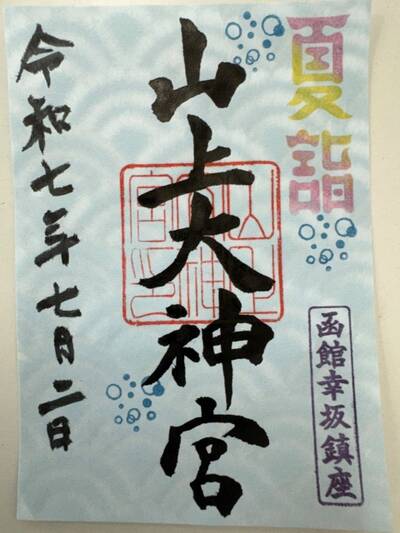 夏詣
函館幸坂鎮座
山上大神宮
令和七年七月二日